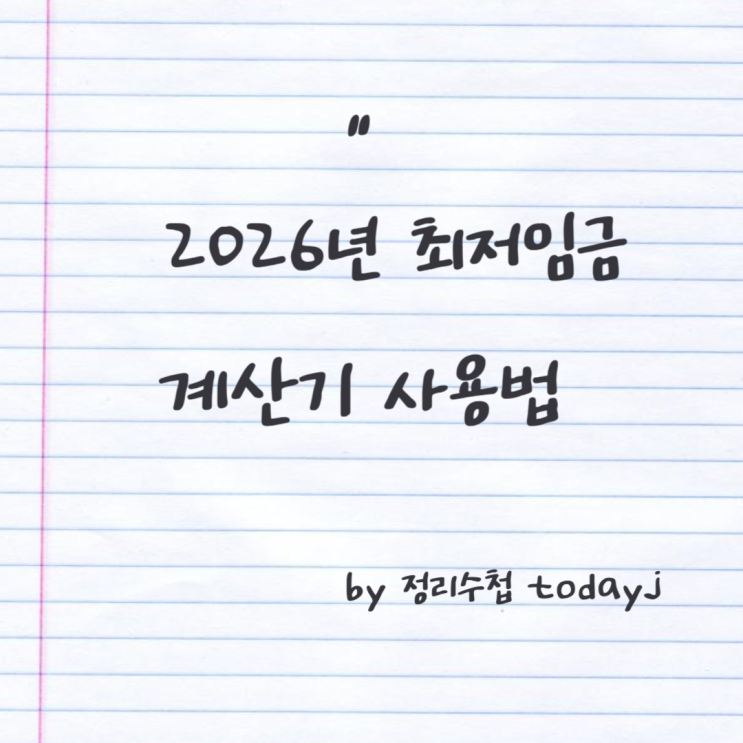 "
2026년 최저임금
계산기 사용법
by 정리수첩 todayj